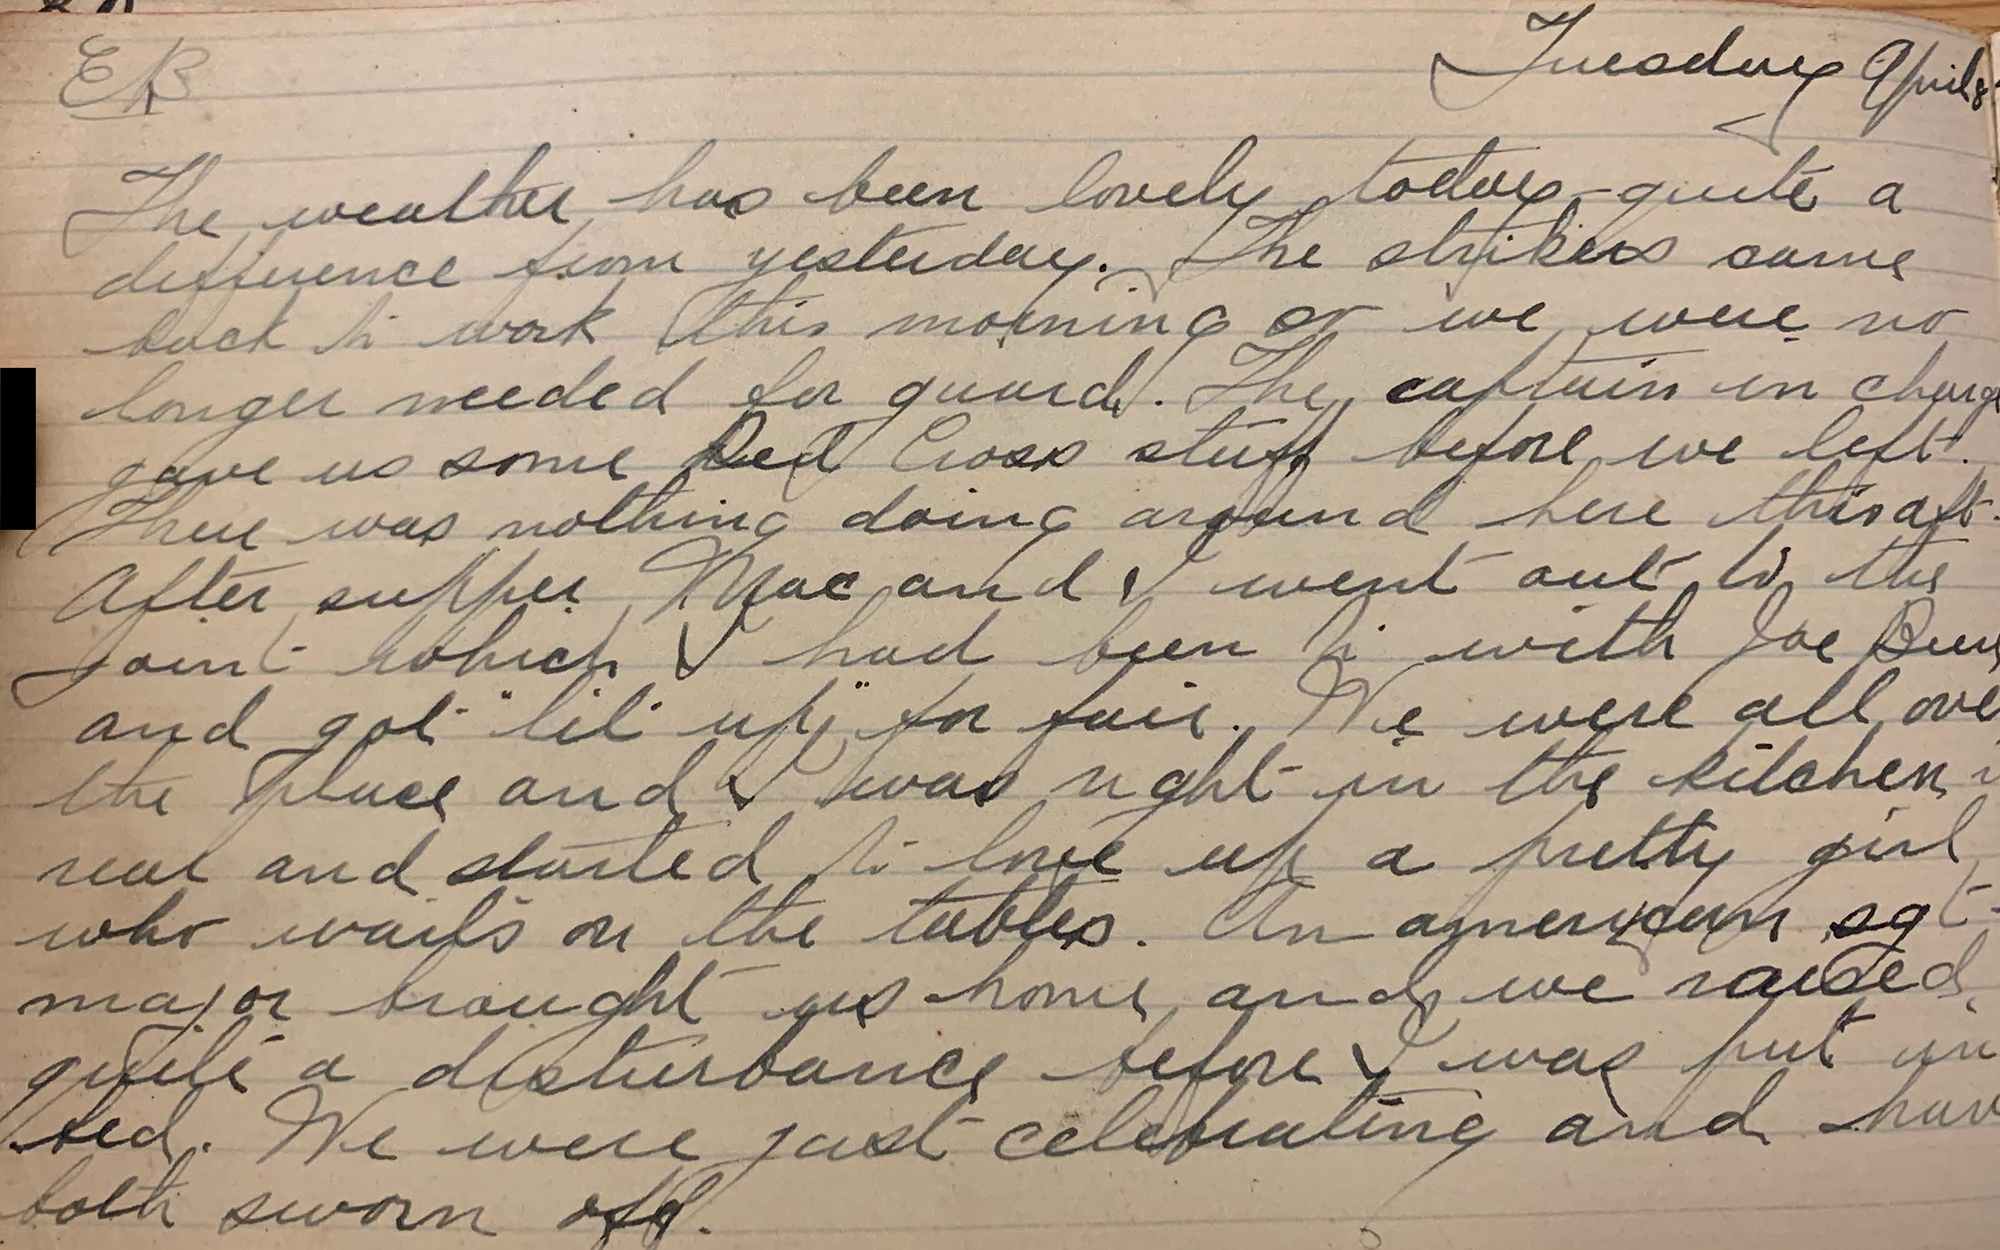 EB
Tuesday April 8
The weather has been lovely today quite a
difference from yesterday. The strikers came
back to work this morning so we were no
longer needed for guard. The captain in charge
gave us some Red Cross stuff before we left.
There was nothing doing around here this aft.
After supper Mac and I went out to the
joint which I had been to with Joe
and got "lit up" for fair. We were all over
the place and I was right in the kitchen
rear and started to love up a pretty girl
who waits on the tables. An american sgt-
major brought us home and we raised
quite a disturbance before I was put in
bed. We were just celebrating and have
both sworn off.